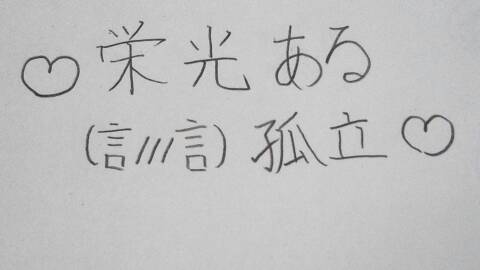 ♡栄光ある
(言///言)孤立♡